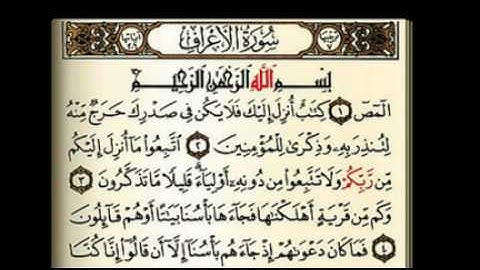 سُورَةُ الْأَعْرَافِ
بِسْمِ اللَّهِ الرَّحْمَٰنِ الرَّحِيمِ
الٓمٓصٓ ١ كِتَٰبٌ أُنزِلَ إِلَيْكَ فَلَا يَكُن فِى صَدْرِكَ حَرَجٌ مِّنْهُ
لِتُنذِرَ بِهِۦ وَذِكْرَىٰ لِلْمُؤْمِنِينَ ٢ ٱتَّبِعُوا۟ مَآ أُنزِلَ إِلَيْكُم
مِّن رَّبِّكُمْ وَلَا تَتَّبِعُوا۟ مِن دُونِهِۦٓ أَوْلِيَآءَ قَلِيلًا مَّا تَذَكَّرُونَ ٣
وَكَم مِّن قَرْيَةٍ أَهْلَكْنَٰهَا فَجَآءَهَا بَأْسُنَا بَيَٰتًا أَوْ هُمْ قَآئِلُونَ
٤ فَمَا كَانَ دَعْوَىٰهُمْ إِذْ جَآءَهُم بَأْسُنَآ إِلَّآ أَن قَالُوٓا۟ إِنَّا كُنَّا